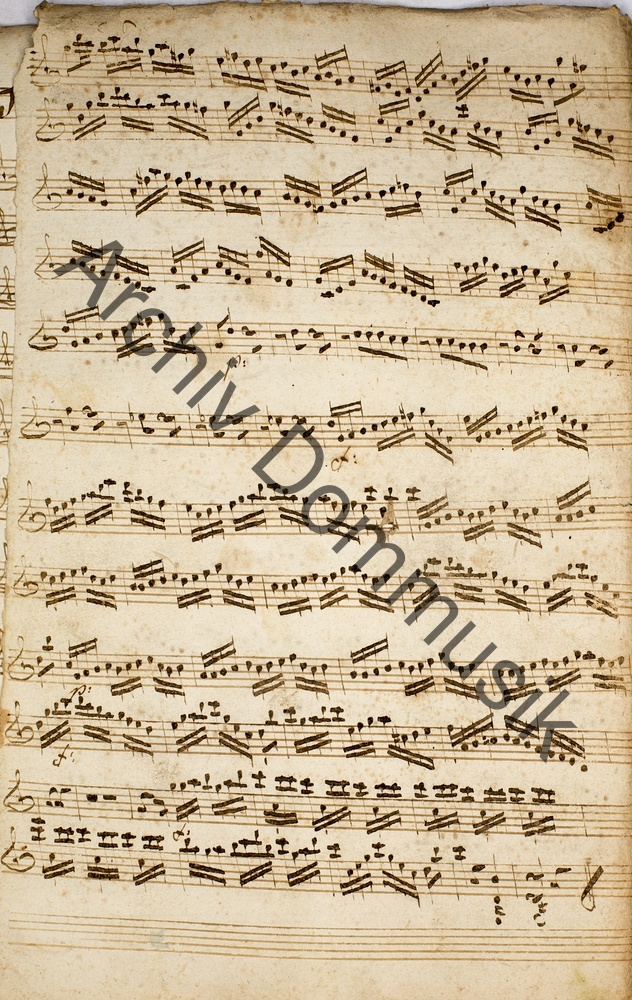 p:
f:
p:
f:
f:
Archiv Dommusik